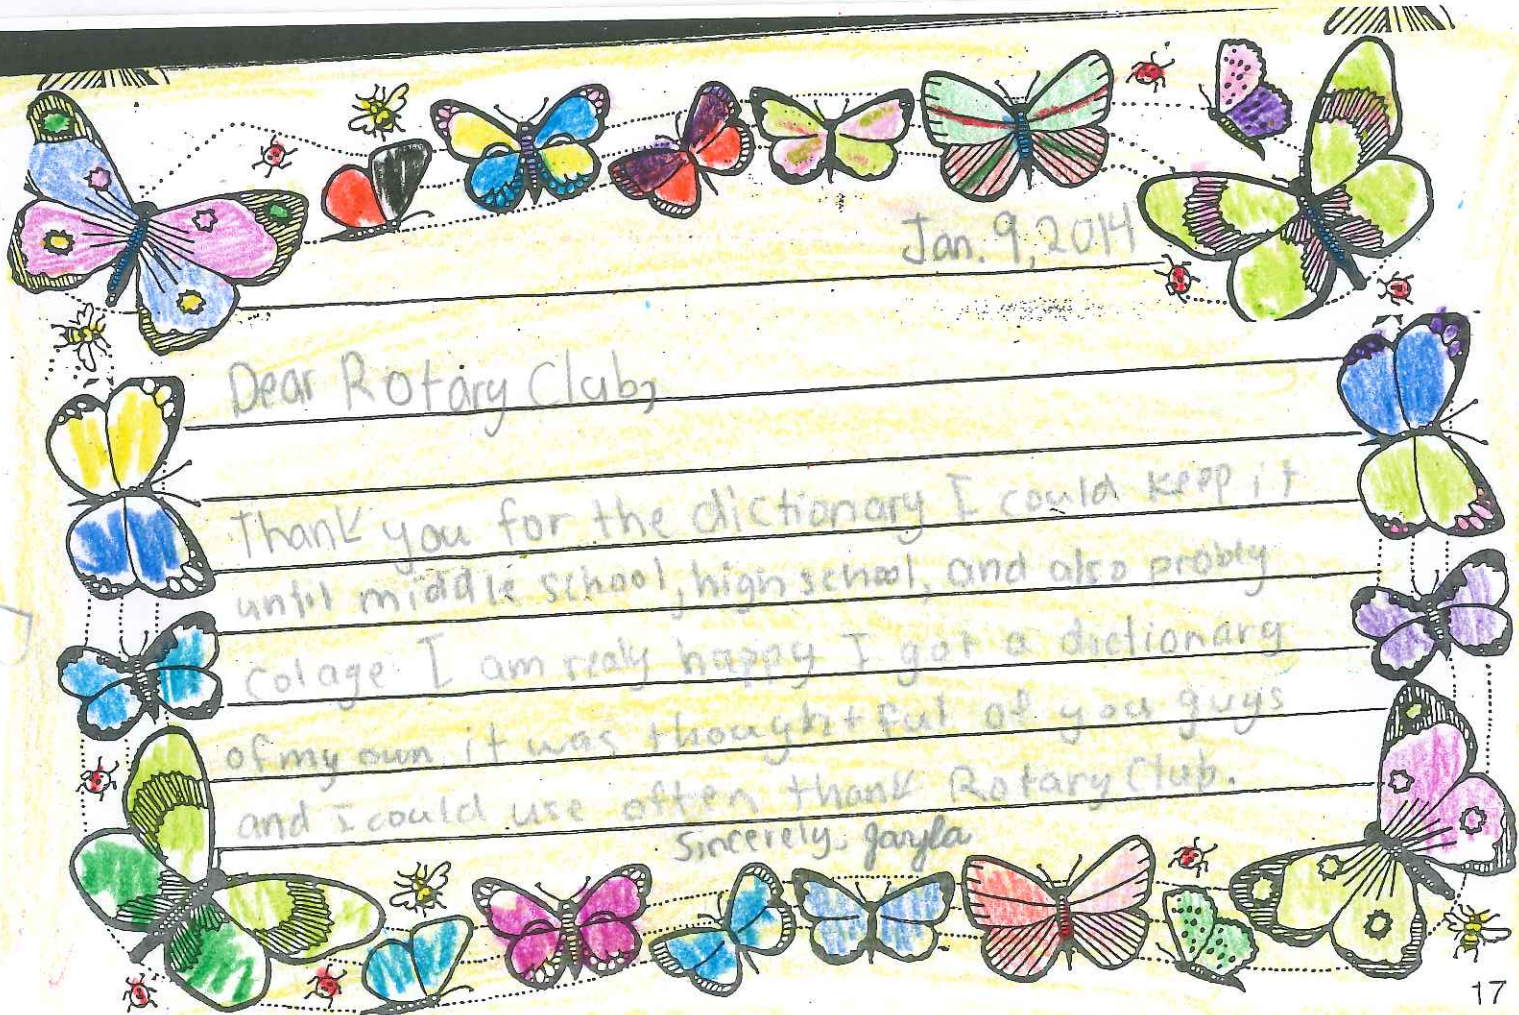 Jan. 9, 2014
Dear Rotary Club,
Thank you for the dictionary I could keep it
until middle school, high school, and also probly
colage I am realy happy I got a dictionary
of my own it was thoughtful of you guys
and I could use often thank Rotary Club.
Sincerely, Jayla
17